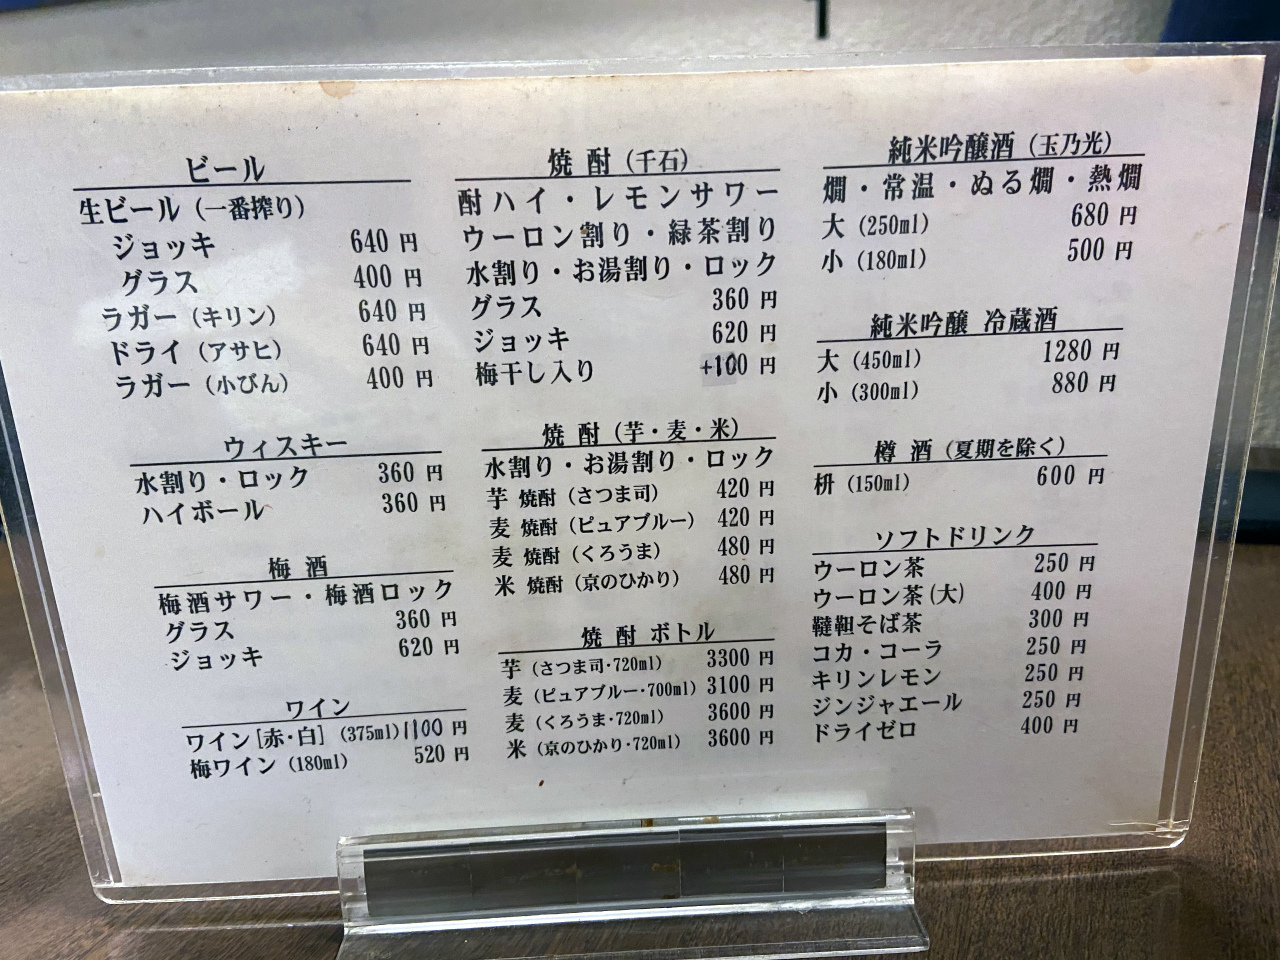 ビール
生ビール（一番搾り）
ジョッキ 640 円
グラス 400 円
ラガー（キリン） 640 円
ドライ（アサヒ） 640 円
ラガー（小びん） 400 円
ウィスキー
水割り・ロック 360 円
ハイボール 360 円
梅 酒
梅酒サワー・梅酒ロック
グラス 360 円
ジョッキ 620 円
ワイン
ワイン［赤・白］（375ml）1100 円
梅ワイン（180ml） 520 円
焼 酎（千石）
酎ハイ・レモンサワー
ウーロン割り・緑茶割り
水割り・お湯割り・ロック
グラス 360 円
ジョッキ 620 円
梅干し入り +100 円
焼 酎（芋・麦・米）
水割り・お湯割り・ロック
芋 焼酎（さつま司） 420 円
麦 焼酎（ピュアブルー） 420 円
麦 焼酎（くろうま） 480 円
米 焼酎（京のひかり） 480 円
焼 酎 ボトル
芋（さつま司・720ml） 3300 円
麦（ピュアブルー・700ml）3100 円
麦（くろうま・720ml） 3600 円
米（京のひかり・720ml） 3600 円
純米吟醸酒（玉乃光）
燗・常温・ぬる燗・熱燗
大（250ml） 680 円
小（180ml） 500 円
純米吟醸 冷蔵酒
大（450ml） 1280 円
小（300ml） 880 円
樽 酒（夏期を除く）
枡（150ml） 600 円
ソフトドリンク
ウーロン茶 250 円
ウーロン茶（大） 400 円
韃靼そば茶 300 円
コカ・コーラ 250 円
キリンレモン 250 円
ジンジャエール 250 円
ドライゼロ 400 円